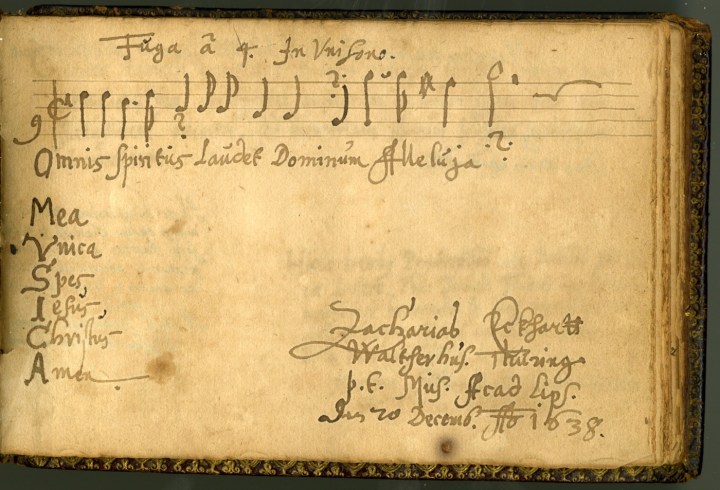 Fuga ã 4. In Unisono.
Omnis spiritus laudet Dominum Alleluja
Mea
Vnica
Spes
Iesus
Christus
Amen
Zacharias Eckhartt
Walthershus. Thüring
p.t. Mus. Acad Lips.
20 Decemb. Ao 1638.